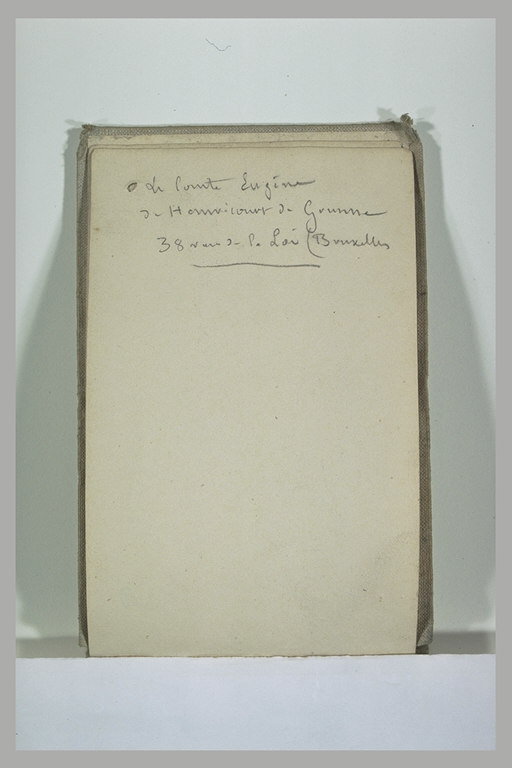 Le Comte Eugène
de Hemricourt de Grunne
38 rue de la Loi (Bruxelles